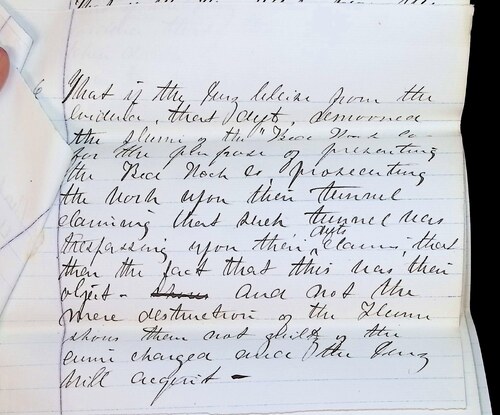 6 That if the Jury believe from the
Evidence, that Defts, removed
the flume of the "Bed Rock Co -
for the purpose of preventing
the Bed Rock Co, prosecuting
the work upon their tunnel
claiming that such tunnel was
trespassing upon their Defts claims, that
then the fact that this was their
object - shows and not the
mere destruction of the Flume
shows them not guilty of the
crime charged and the Jury
will acquit -